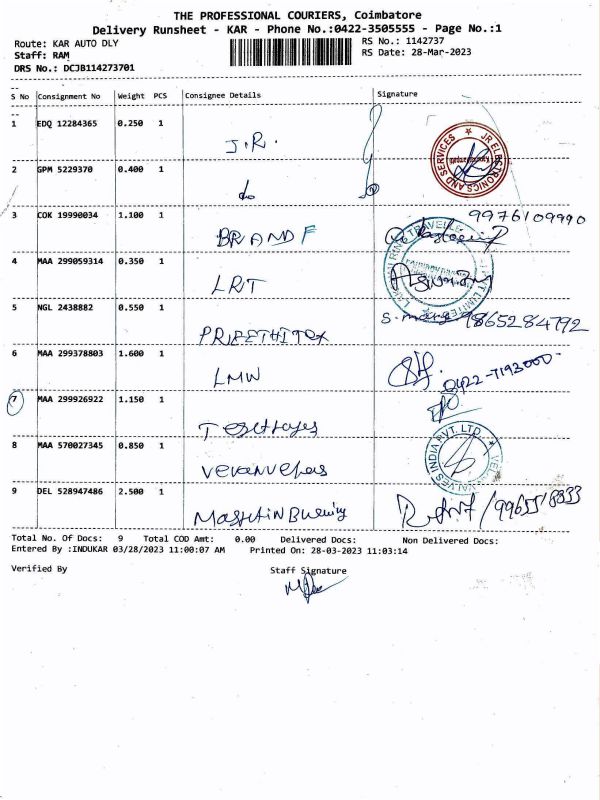 THE PROFESSIONAL COURIERS, Coimbatore
Delivery Runsheet - KAR - Phone No.:0422-3505555 - Page No.:1
Route: KAR AUTO DLY RS No.: 1142737
Staff: RAM RS Date: 28-Mar-2023
DRS No.: DCJB114273701
S No Consignment No Weight PCS Consignee Details Signature
1 EDQ 12284365 0.250 1 J.R.
JR ELECTRONICS AND SERVICES
2 GPM 5229370 0.400 1 do
3 COK 19990034 1.100 1 BRAND F 9976109990
4 MAA 299059314 0.350 1 LRT
5 NGL 2438882 0.550 1 9865284792
6 MAA 299378803 1.600 1 LMW 0422-7193000
7 MAA 299926922 1.150 1
8 MAA 570027345 0.850 1
VES INDIA PVT. LTD
9 DEL 528947486 2.500 1 9965518833
Total No. Of Docs: 9 Total COD Amt: 0.00 Delivered Docs: Non Delivered Docs:
Entered By :INDUKAR 03/28/2023 11:00:07 AM Printed On: 28-03-2023 11:03:14
Verified By Staff Signature